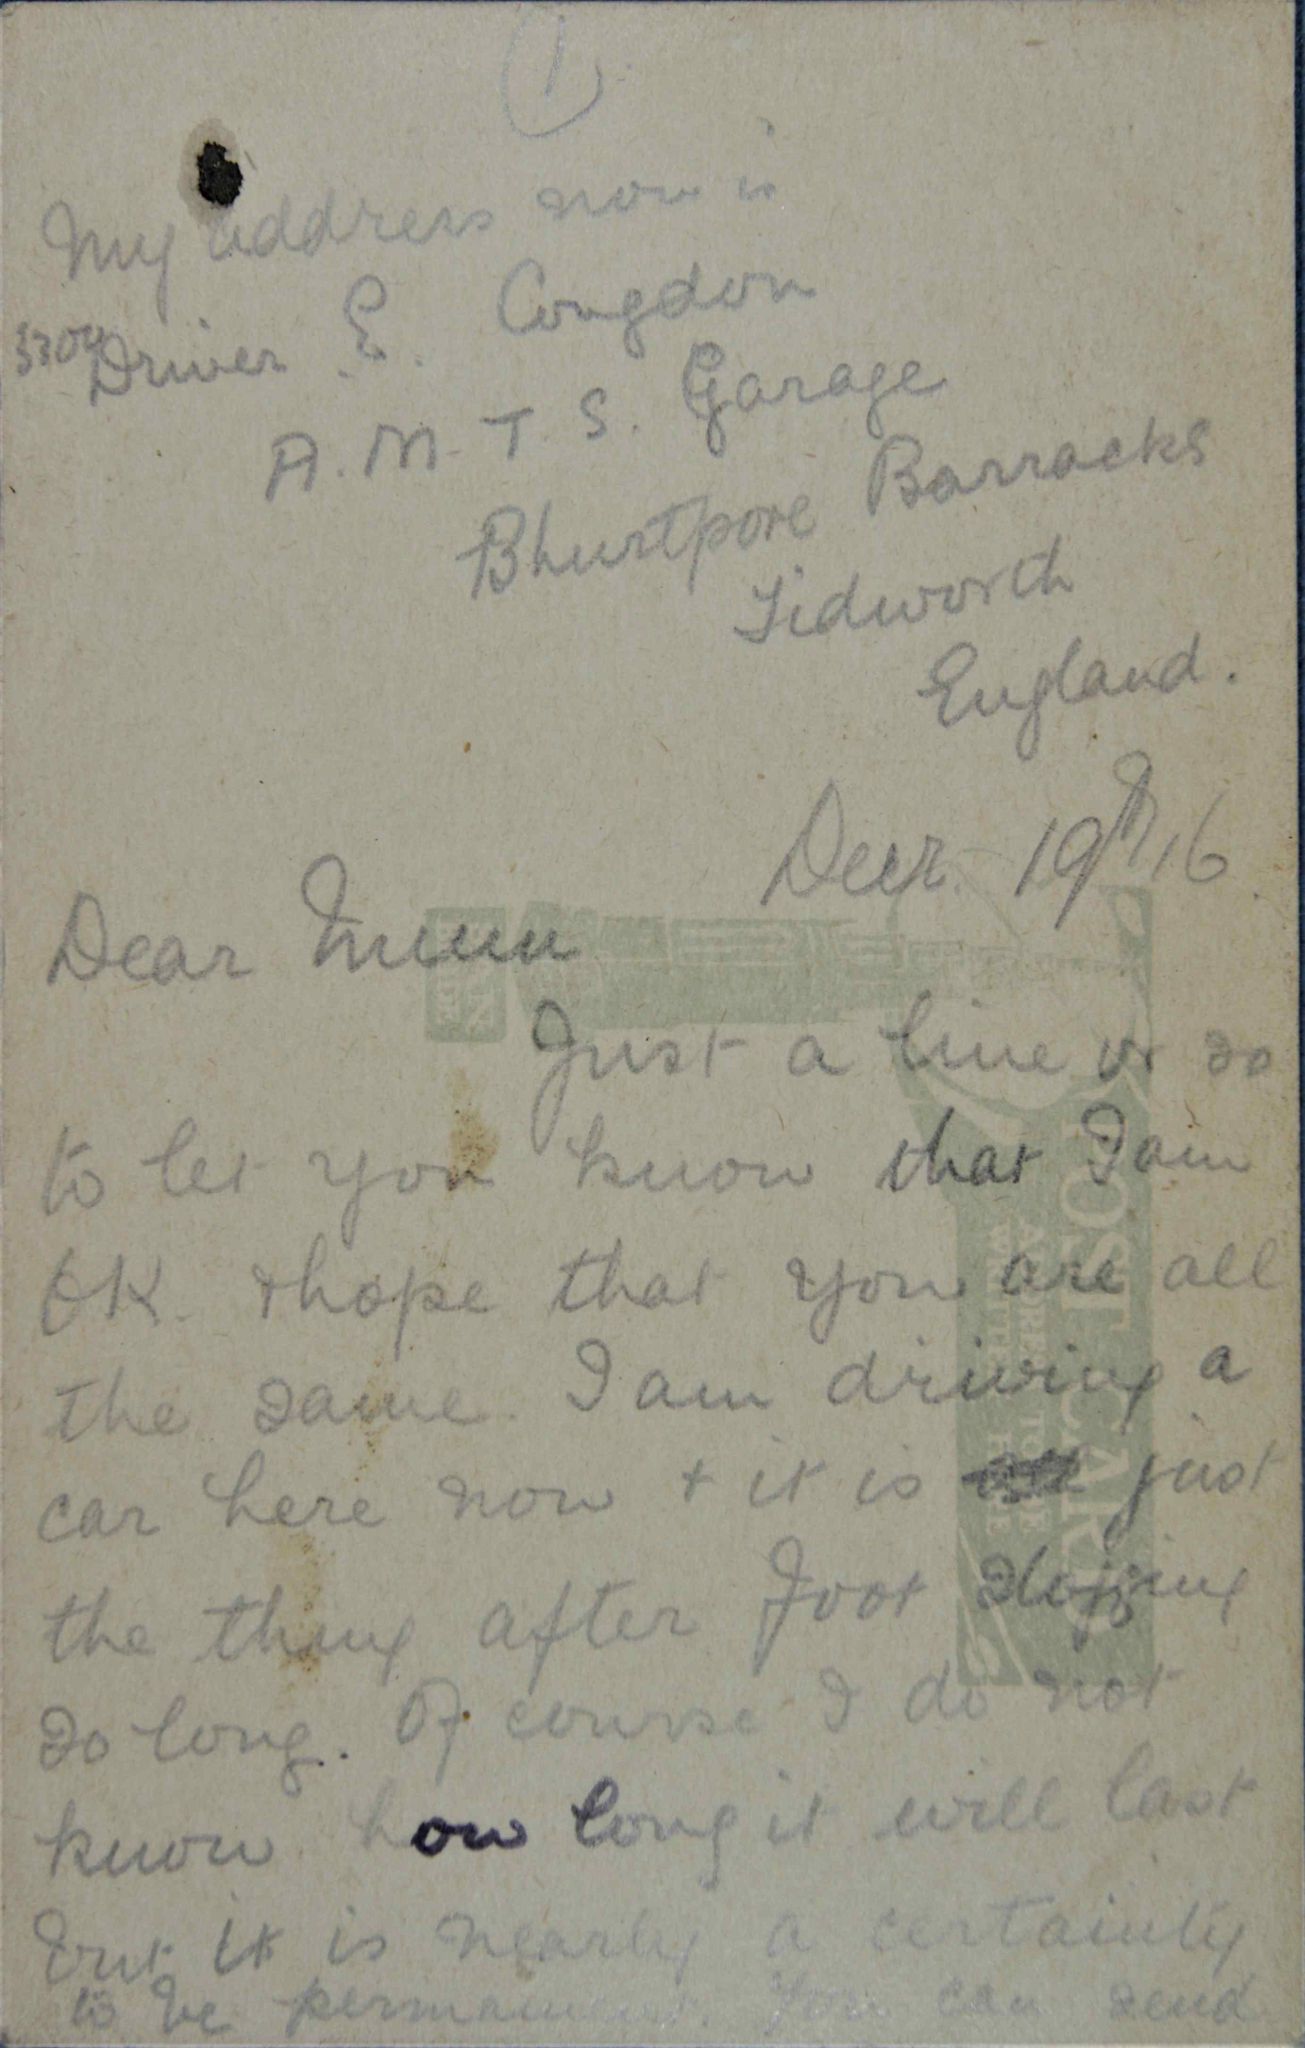 1
My address now is
Driver E. Congdon
A. M. T. S. Garage
Bhurtpore Barracks
Tidworth
England.
Decr. 19th/16
Dear Mum
Just a line or so
to let you know that I am
OK. & hope that you are all
the same. I am driving a
car here now + it is just
the thing after foot slogging
so long. Of course I do not
know how long it will last
but it is nearly a certainty
to be permanent. You can send
POST CARD